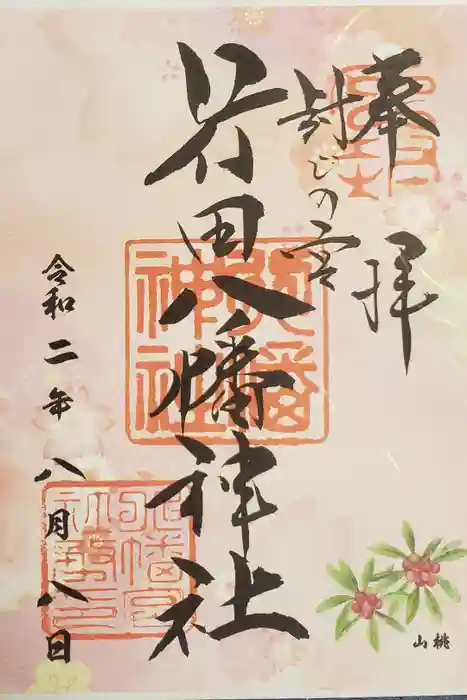 奉拝
封じの宮
田八幡神社
令和二年八月八日
山桃